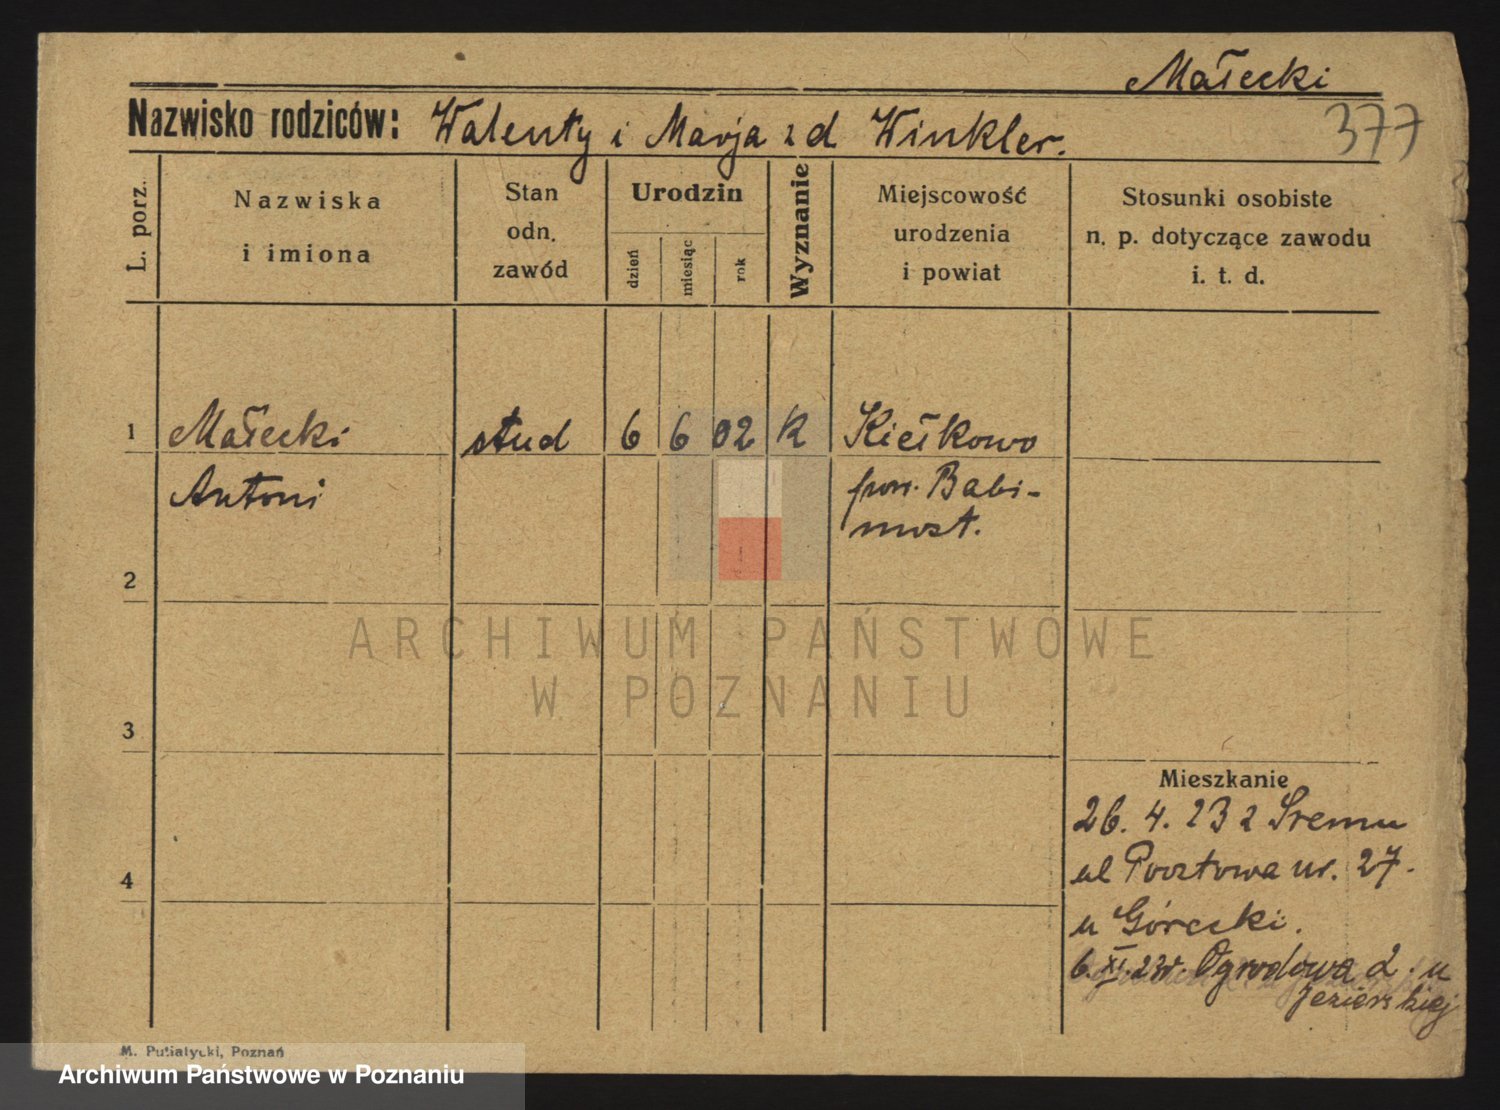 Małecki
Nazwisko rodziców: Walenty i Marja z d Winkler.
377
L. porz.
Nazwiska
i imiona
Stan
odn.
zawód
Urodzin
dzień
miesiąc
rok
Wyznanie
Miejscowość
urodzenia
i powiat
Stosunki osobiste
n. p. dotyczące zawodu
i. t. d.
1 Małecki stud 6 6 02 K Kiełkowo
Antoni pow. Babi-
most.
2
ARCHIWUM PAŃSTWOWE
W POZNANIU
3
Mieszkanie
26. 4. 23 z Sremu
ul Pocztowa nr. 27.
4
u Górecki.
6. XI. 23r. Ogrodowa 2. u
Jezierskiej
M. Putiatycki, Poznań
Archiwum Państwowe w Poznaniu